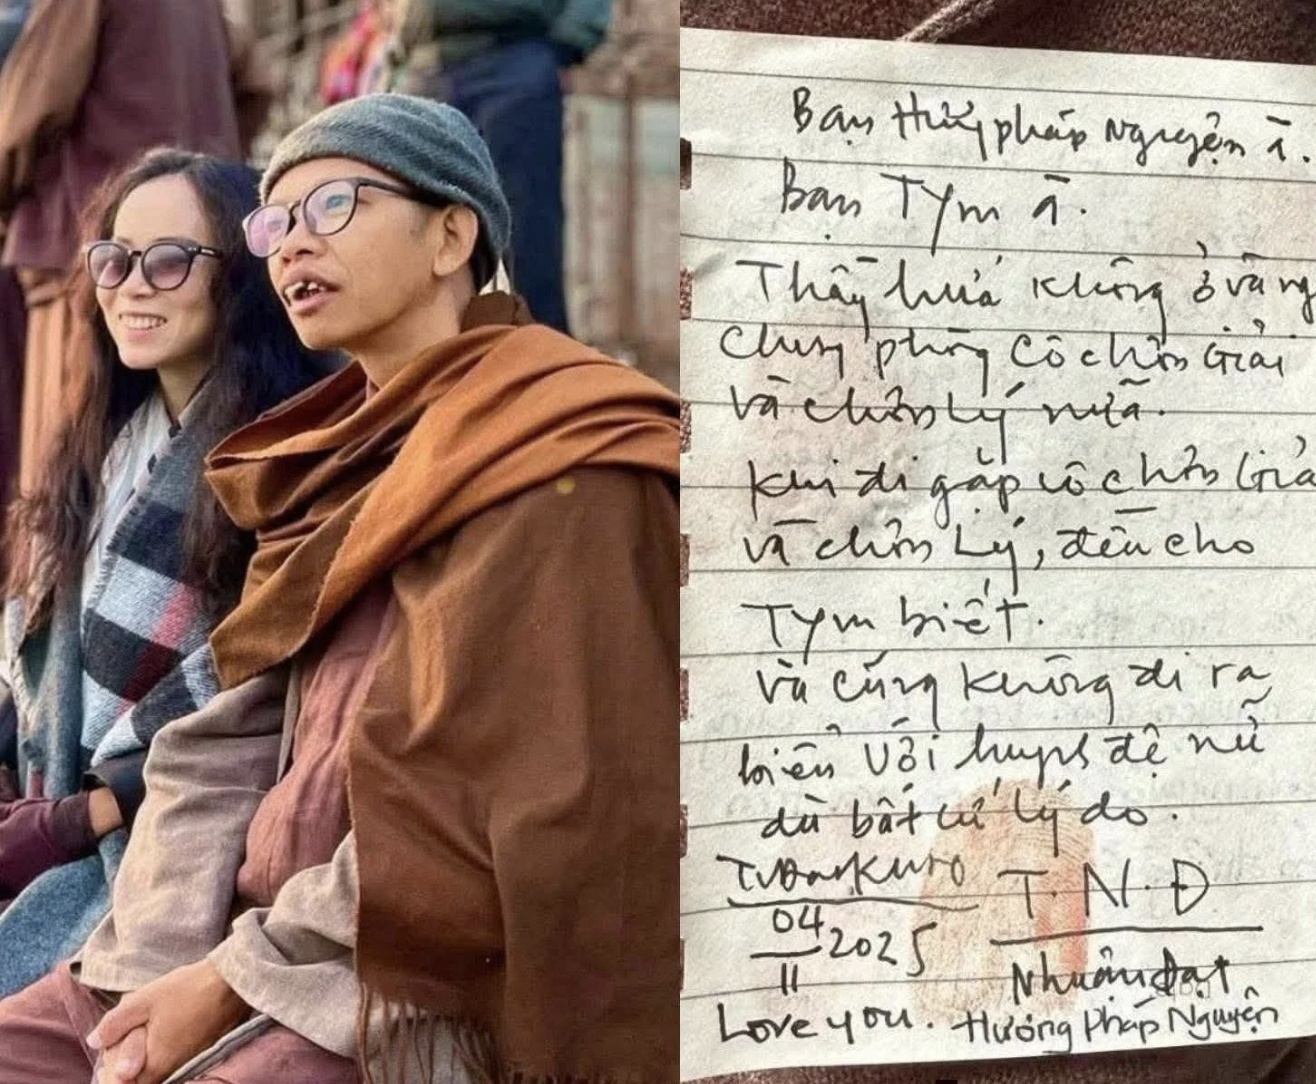 Bạn Hương pháp Nguyện à.
Bạn Tym à.
Thầy hứa không ở và ng
chung phòng cô chơn Giải
và chơn Lý nữa.
Khi đi gặp cô chơn Giả
và chơn Lý, đều cho
Tym biết.
và cũng không đi ra
biển với huynh đệ nữ
dù bất cứ lý do.
04/11 2025
T.N.Đ
Nhuận Đạt
Love you. Hương Pháp Nguyện